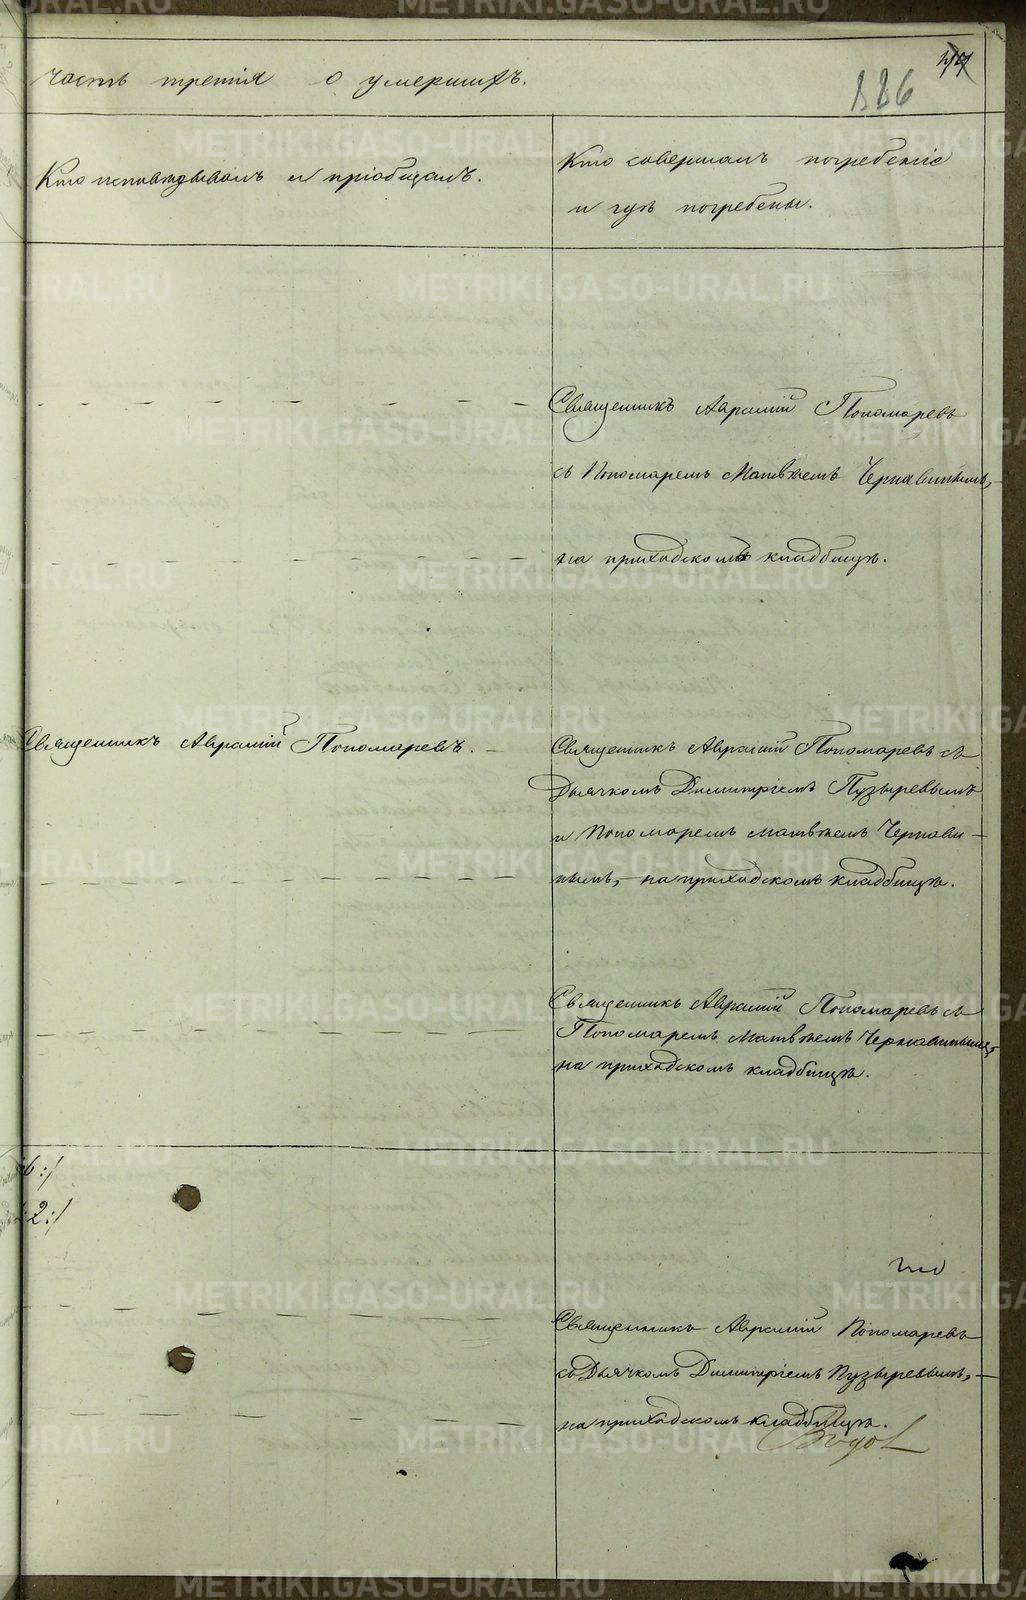 часть третія о умершихъ.
886
Кто исповѣдывалъ и пріобщалъ.
Кто совершалъ погребеніе
и гдѣ погребены.
Священникъ Аврамій Пономаревъ
съ Пономаремъ Матвѣемъ Чернавинымъ,
на приходскомъ кладбищѣ.
Священникъ Аврамій Пономаревъ.
Священникъ Аврамій Пономаревъ съ
Дьячкомъ Димитріемъ Пузыревымъ
и Пономаремъ Матвѣемъ Чернави-
нымъ, на приходскомъ кладбищѣ.
Священникъ Аврамій Пономаревъ съ
Пономаремъ Матвѣемъ Чернавинымъ,
на приходскомъ кладбищѣ.
6:/
2:/
Священникъ Аврамій Пономаревъ
съ Дьячкомъ Димитріемъ Пузыревымъ,
на приходскомъ кладбищѣ.
METRIKI.GASO-URAL.RU